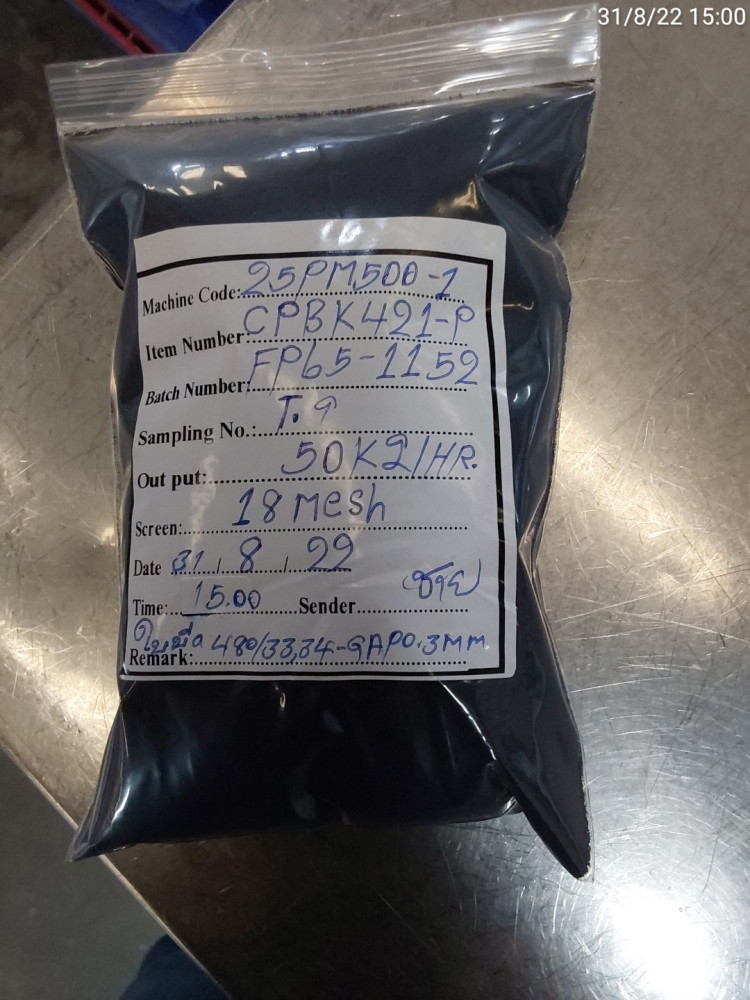 31/8/22 15:00
Machine Code: 25PM500-1
Item Number: CPBK421-P
Batch Number: FP65-1152
Sampling No.: T.9
Out put: 50KG/HR.
Screen: 18 mesh
Date 31 / 8 / 22
Time: 15.00 Sender ชาย
Remark: ใบมีด 480/33,34-GAP0.3MM